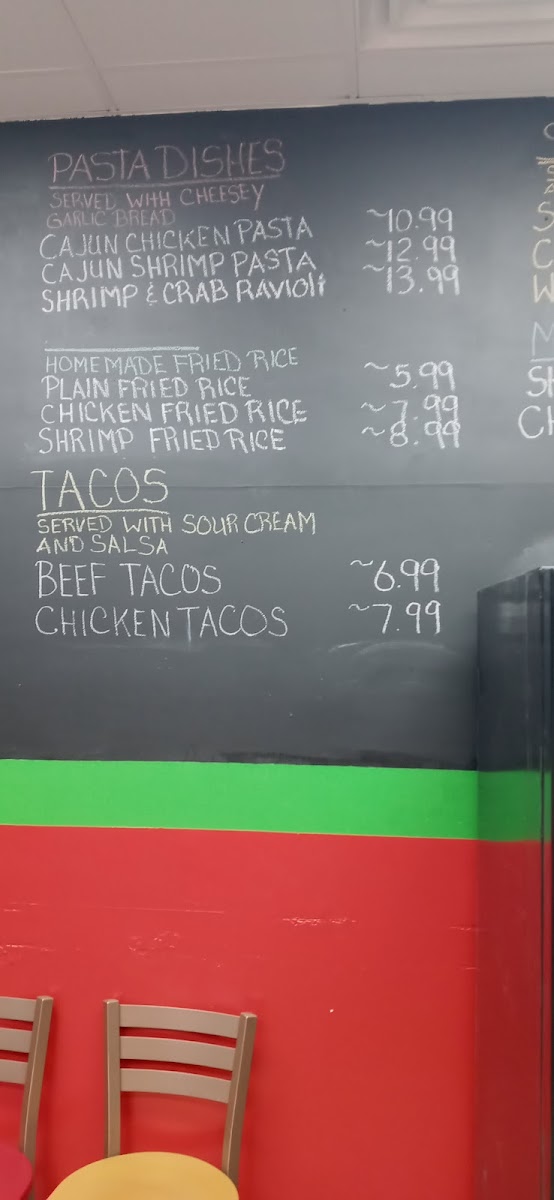 PASTA DISHES
SERVED WITH CHEESEY
GARLIC BREAD
CAJUN CHICKEN PASTA ~10.99
CAJUN SHRIMP PASTA ~12.99
SHRIMP & CRAB RAVIOLI ~13.99
HOMEMADE FRIED RICE
PLAIN FRIED RICE ~5.99
CHICKEN FRIED RICE ~7.99
SHRIMP FRIED RICE ~8.99
TACOS
SERVED WITH SOUR CREAM
AND SALSA
BEEF TACOS ~6.99
CHICKEN TACOS ~7.99